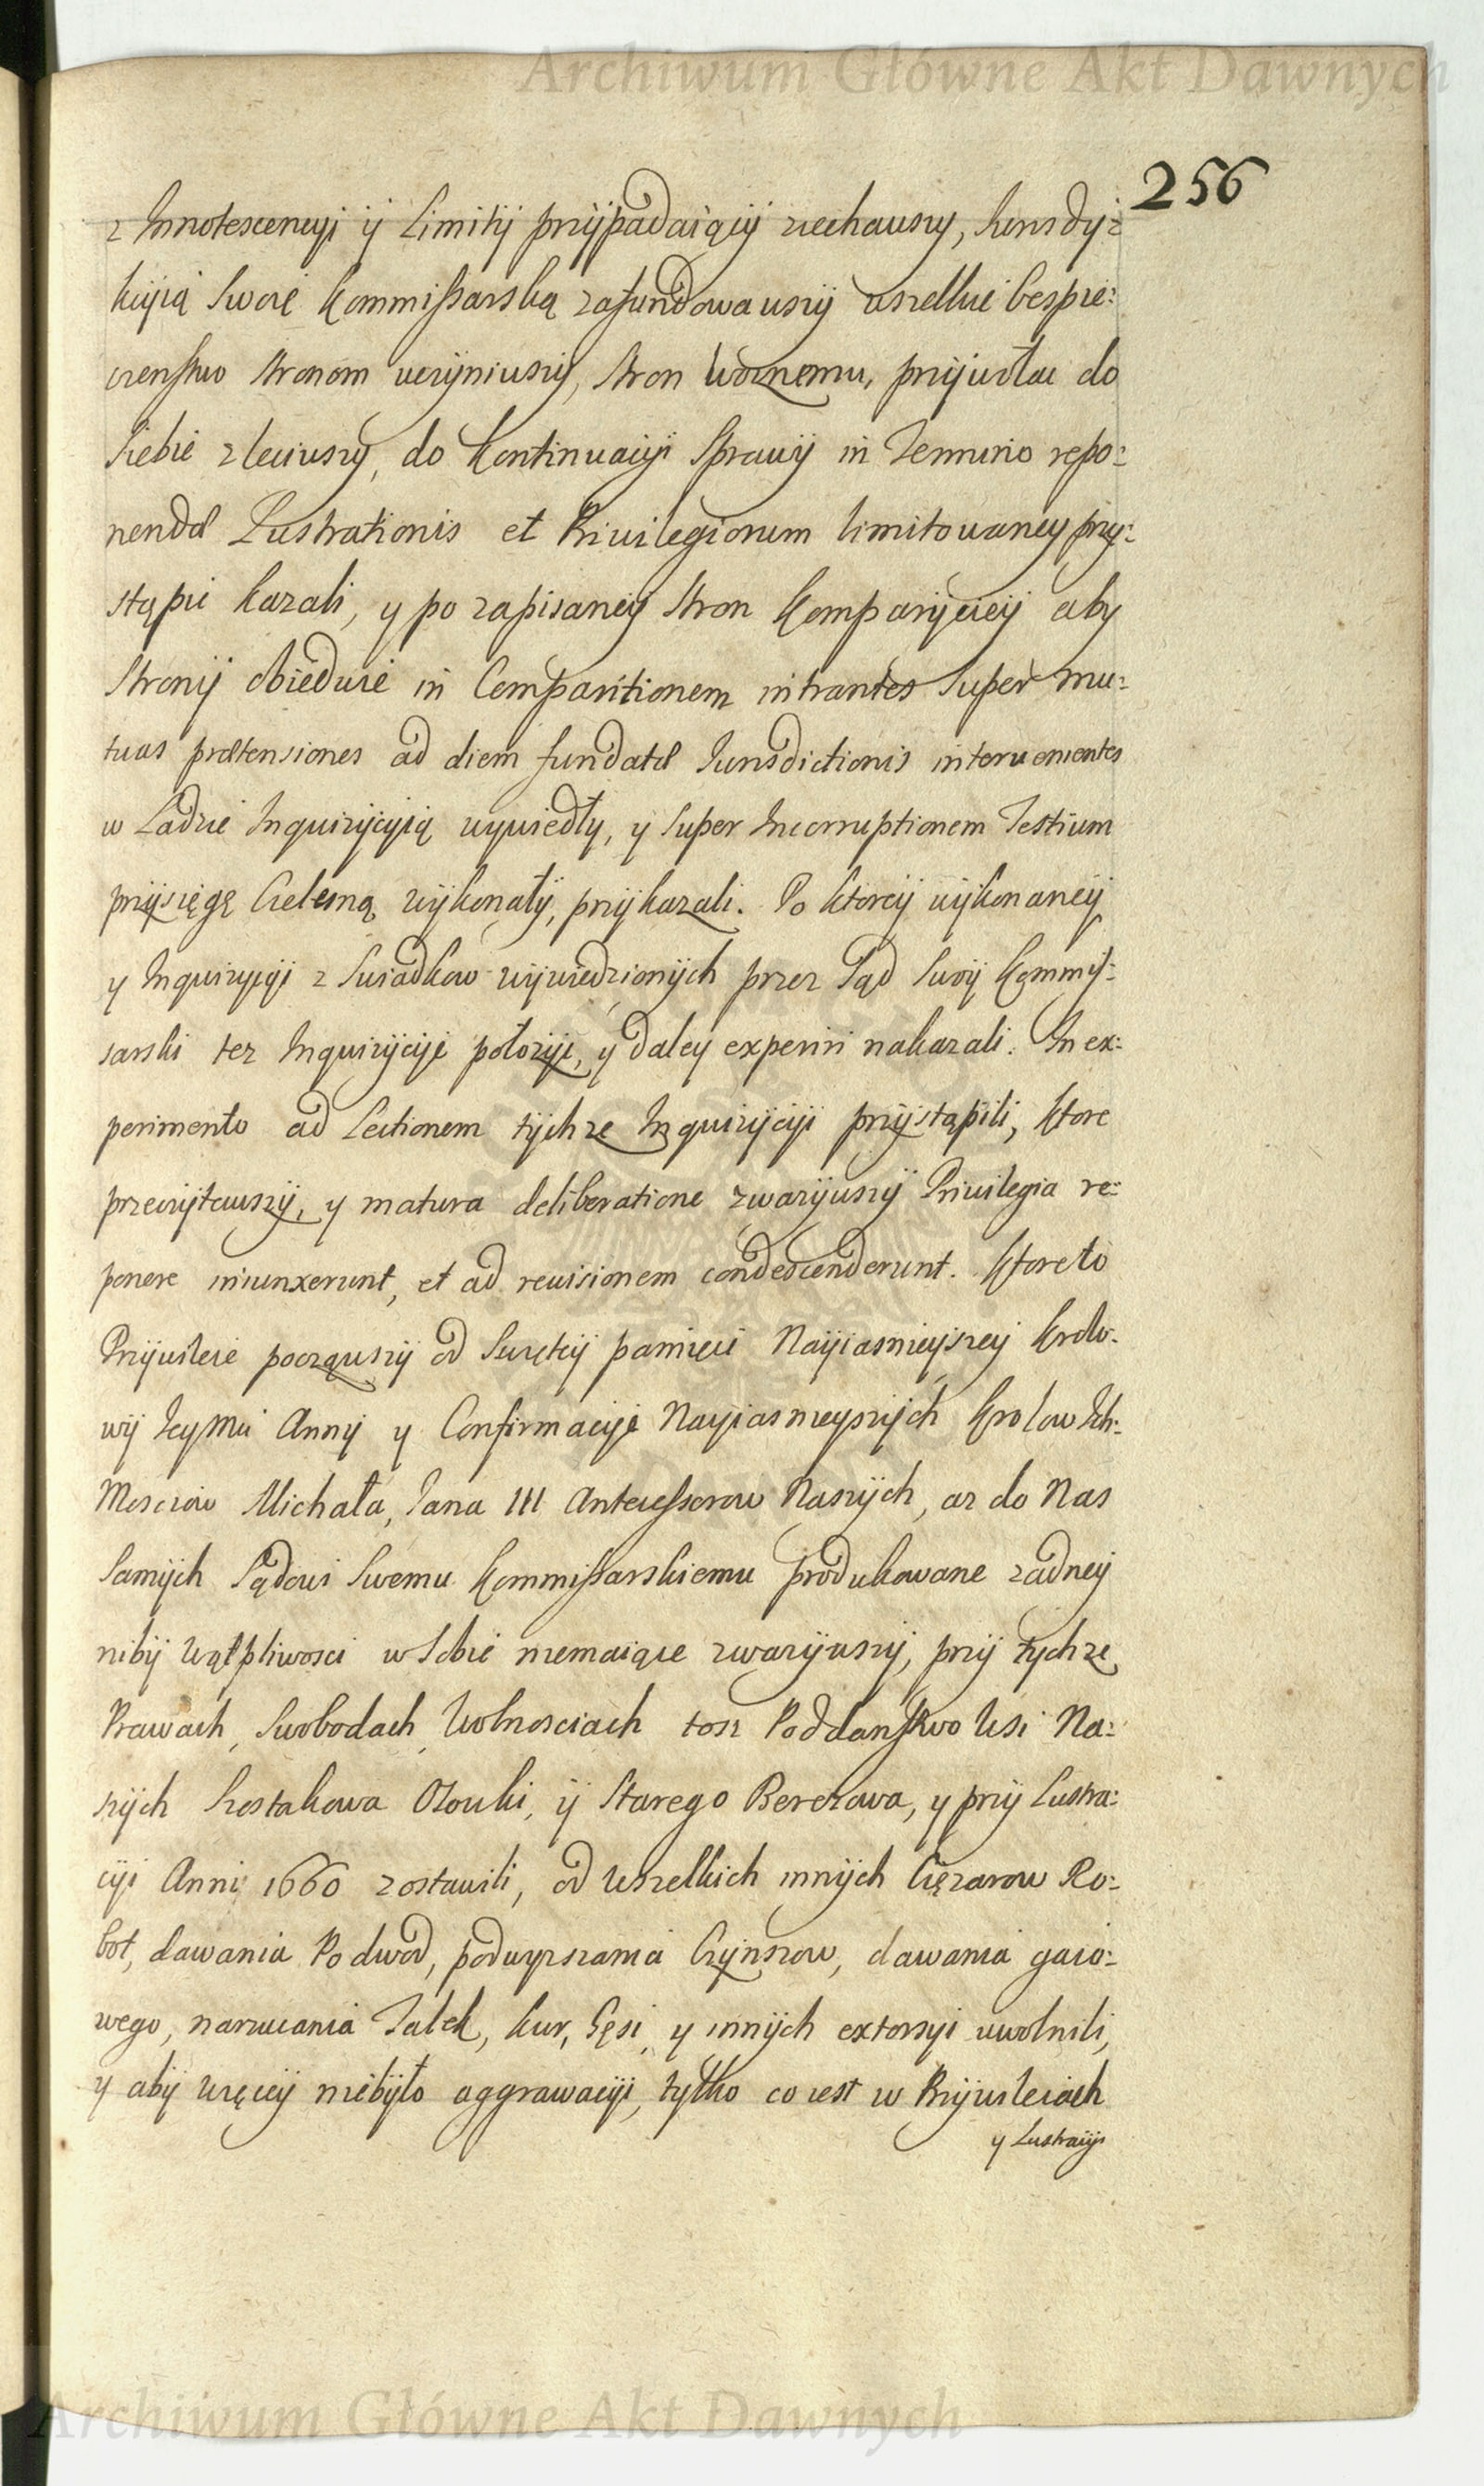 Archiwum Główne Akt Dawnych
256
z Innotescencyi ij Limitij prziypadaiącij ziechawszy, Jurisdij=
kcyią Swoię Kommissarską zafundowawszij wszelkie bespie=
czenstwo stronom uczijniwszij, stron Woznemu, przijwołac do
siebie zleciwszy, do kontinuacyi Sprawij in Termino repo=
nendæ Lustrationis et Privilegiorum limitowaney przy=
stąpic kazali, y po zapisaney stron komparijcieij aby
Stronij obiedwie in Comparitionem intrantes super mu=
tuas prætensiones ad diem fundatæ Jurisdictionis intervenientes
w Sądzie Inquizijcyią wywiedły, y super Incorruptionem Testium
przijsięgę Cielesną wijkonałij, przijkazali. Po ktoreij wijkonaneij
y Inquizycyi z Swiadkow wijwiedzionijch przez Sąd Swoij Kommis=
sarski tez Inquizijcije położijc, y daley experiri nakazali. In ex=
perimento ad Lectionem tijchze Inquizijcyi prziystąpili, ktore
przeczijtawszij, y matura deliberatione zwazijwszij Privilegia re=
ponere iniunxerunt, et ad revisionem condescenderunt. Ktore to
Przijwileie począwszij od Swiętey pamięci Nayiasnieyszey Krolo=
wij Jeymci Anny y Confirmacyie Nayiasnieyszijch Krolow Ich=
Mosciow Michała, Jana III Antecessorow Naszijch, az do Nas
Samijch Sądowi Swemu Kommissarskiemu produkowane zadney
nibij wątpliwosci w Sobie niemaiące zwazijwszij, przij tychze
Prawach, Swobodach, Wolnosciach tosz Poddanstwo Wsi Na=
szijch Szostakowa Ozowki, ij Starego Berezowa, y przij Lustra=
cyi Anni 1660 zostawili, od wszelkich innijch Cięzarow Ro=
bot, dawania Podwod, podwyzszania Czijnszow, dawania gaio=
wego, narzucania Talek, Kur, Gęsi, y innijch extorsyi uwolnili,
y abij więcey niebyło aggrawacyi, tylko co iest w Przijwileiach
y Lustracyi
Archiwum Główne Akt Dawnych